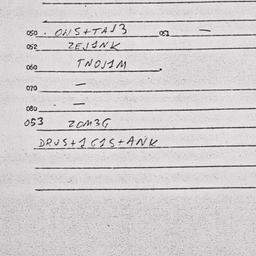 050 . OHS+TAJ3 053 —
052 ZEJ1NK
060 TNOJ1M .
070 —
080 —
053 ZOM3G
DRUS+1C1S+ANK